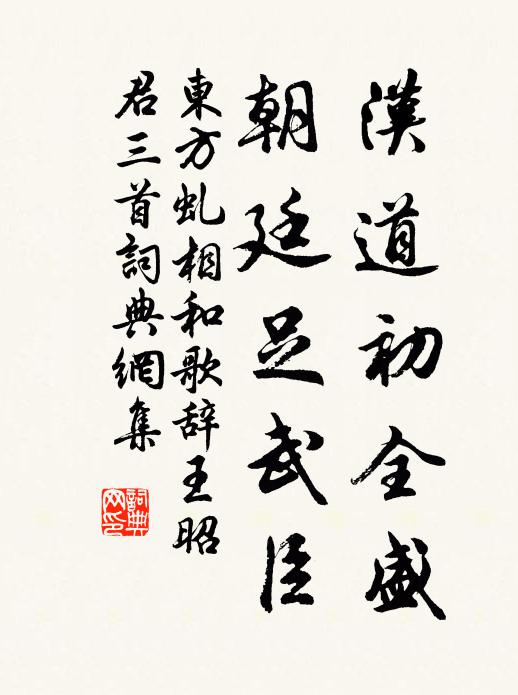 漢道初全盛
朝廷足武臣
東方虬相和歌辞王昭
君三首詞典網集
詞典網印